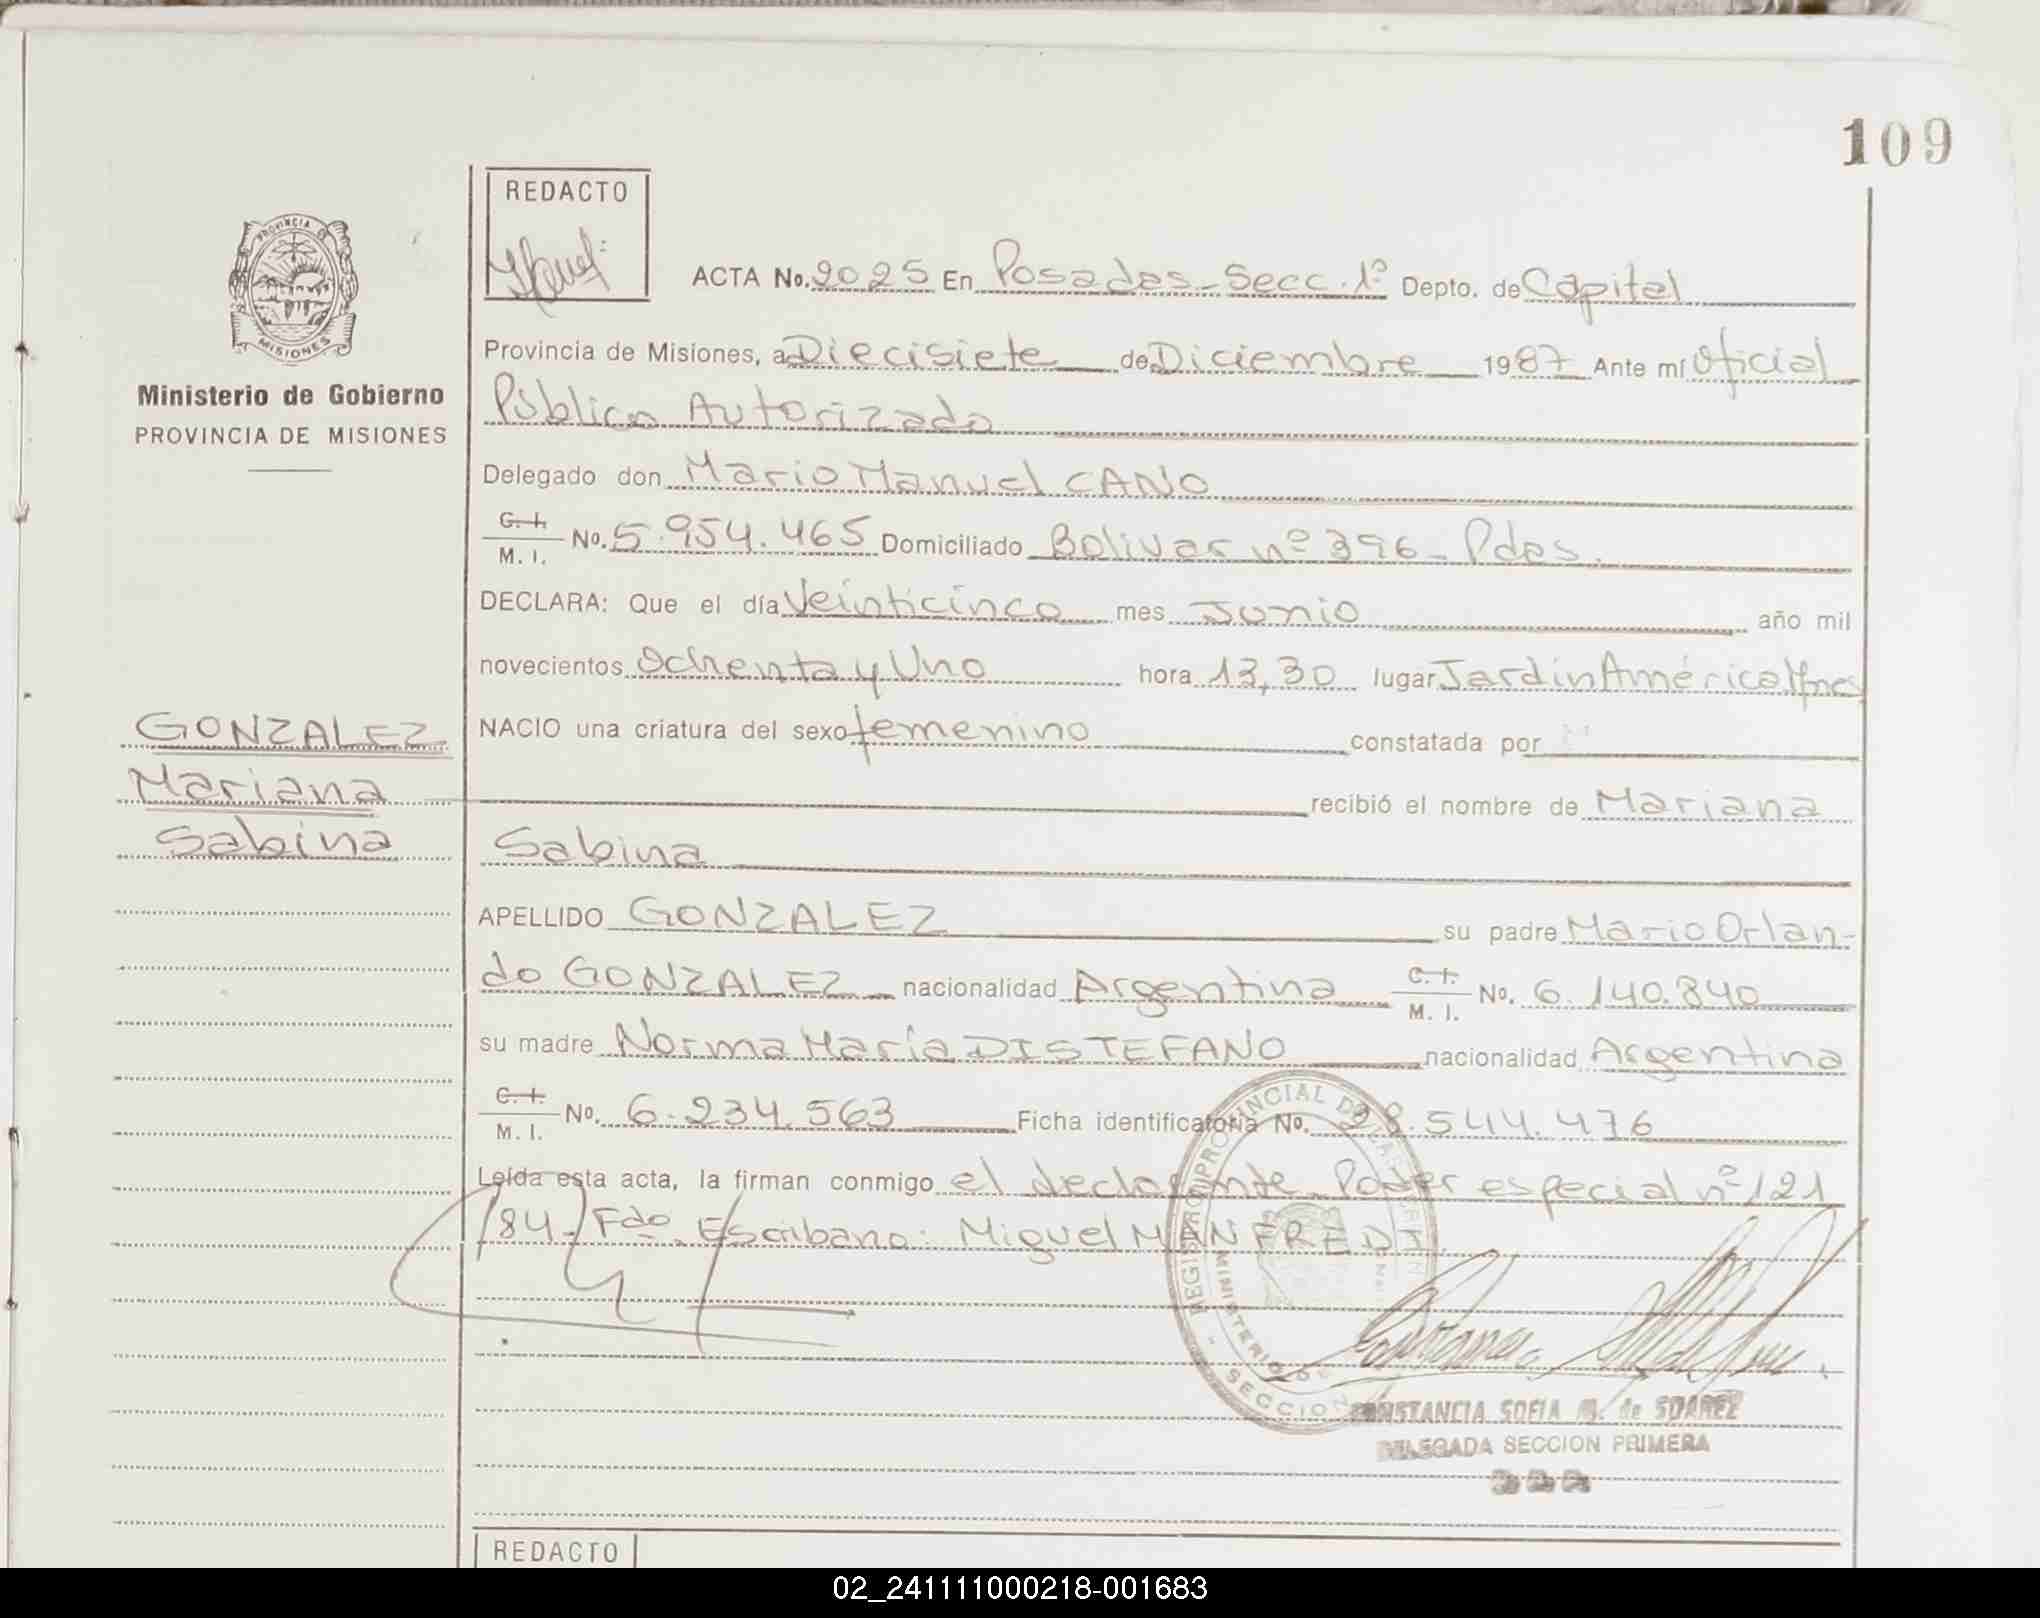 109
REDACTO
PROVINCIA DE
MISIONES
Ministerio de Gobierno
PROVINCIA DE MISIONES
ACTA No. 2025 En Posadas - Secc. 1º Depto. de Capital
Provincia de Misiones, a Diecisiete de Diciembre 1987 Ante mí Oficial
Público Autorizado
Delegado don Mario Manuel CANO
C. I.
M. I. No. 5.954.465 Domiciliado Bolivar nº 396 - Pdas.
DECLARA: Que el día Veinticinco mes Junio año mil
novecientos Ochenta y Uno hora 13,30 lugar Jardín América Mnes
GONZALEZ
Mariana
Sabina
NACIO una criatura del sexo femenino constatada por
recibió el nombre de Mariana
Sabina
APELLIDO GONZALEZ su padre Mario Orlan-
do GONZALEZ nacionalidad Argentina C. I. M. I. No. 6.140.840
su madre Norma María DISTEFANO nacionalidad Argentina
C. I.
M. I. No. 6.234.563 Ficha identificatoria No. 28.544.476
Leída esta acta, la firman conmigo el declarante. Poder especial nº 121
/84. Fdo. Escribano: Miguel MANFREDI.
CONSTANCIA SOFIA M. de SUAREZ
DELEGADA SECCION PRIMERA
REDACTO
02_241111000218-001683